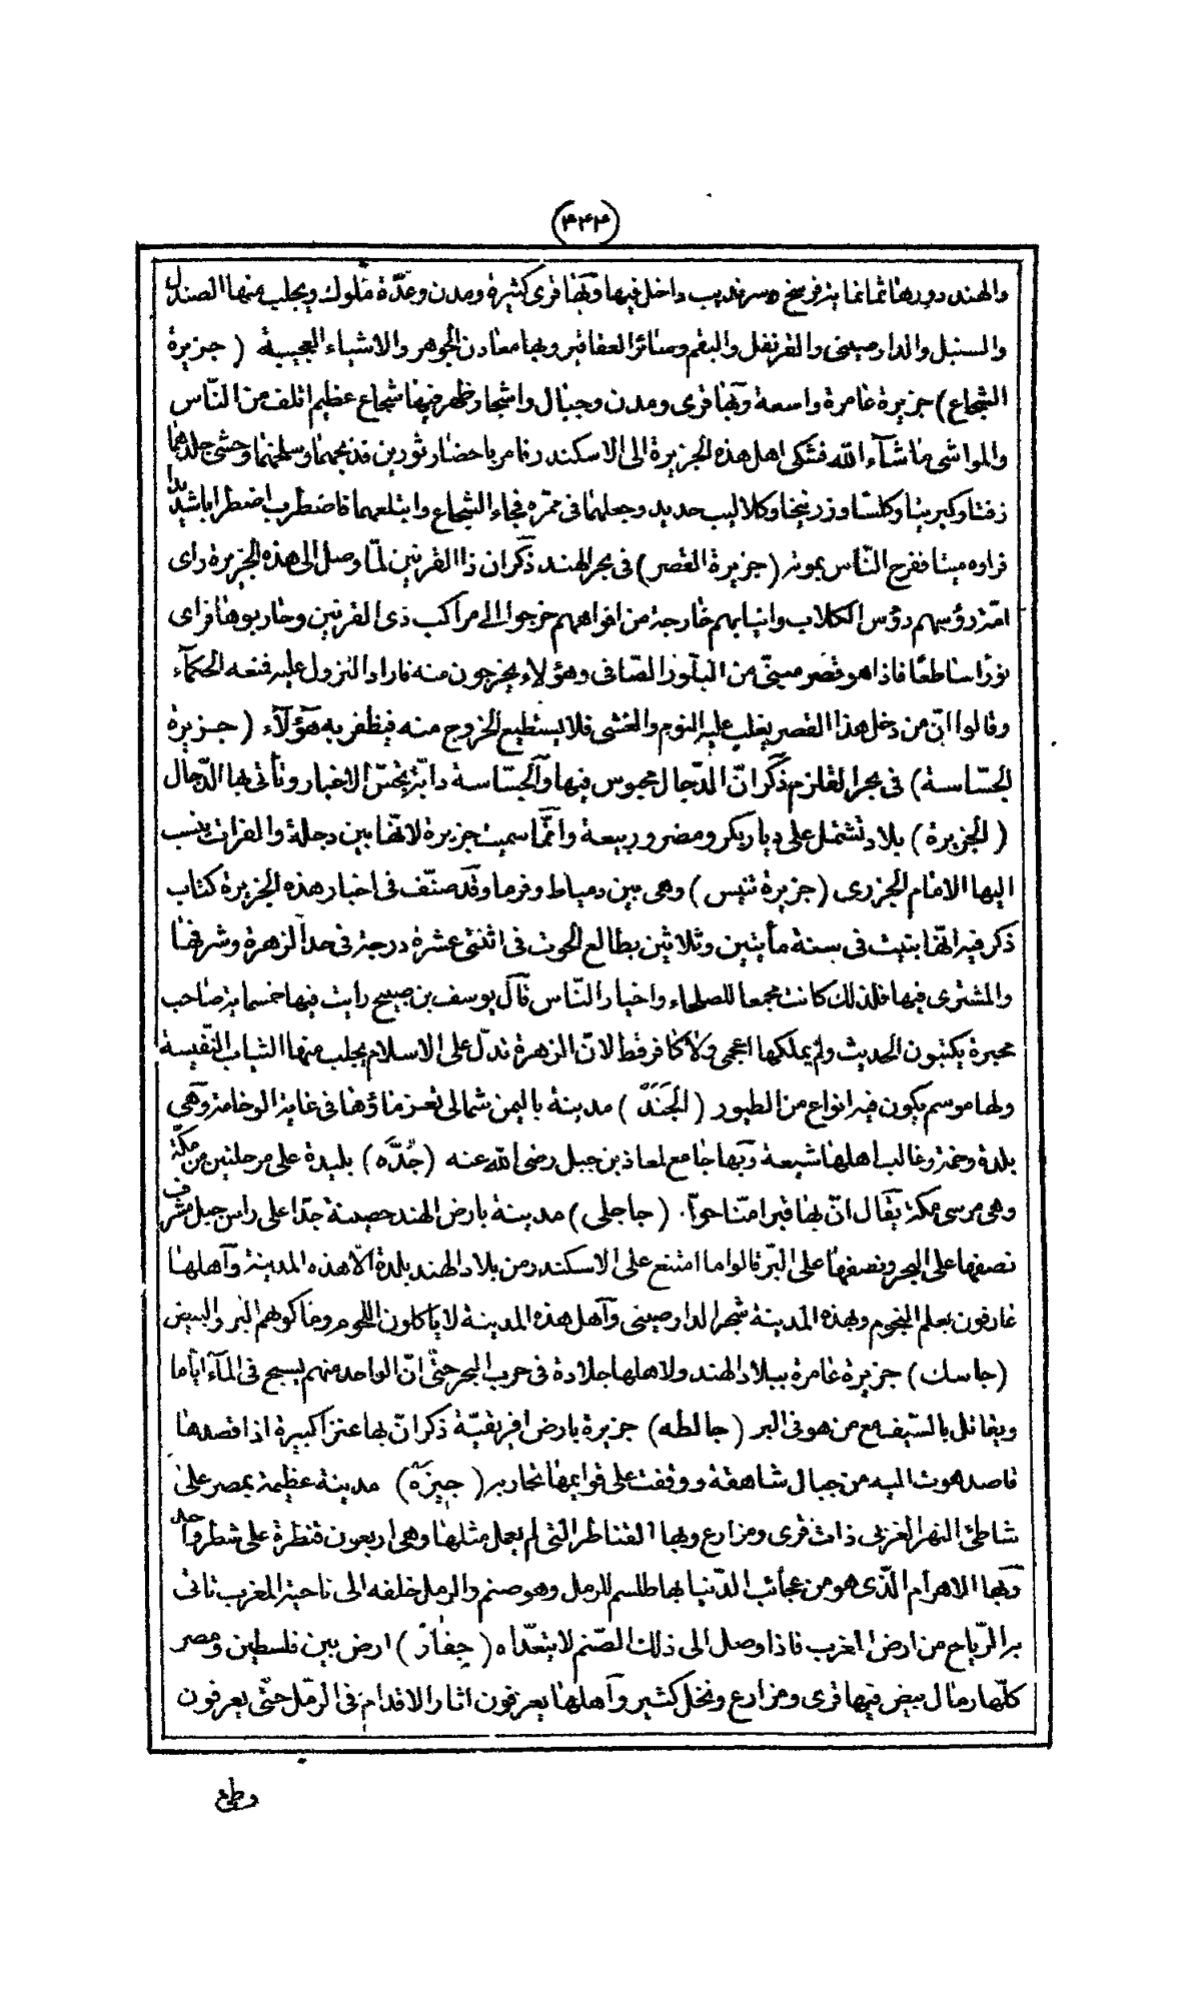 (۴۴۴)
والهند دورها ثمانماية فرسخ وسرنديب داخل فيها وبها قرى كثيرة ومدن وعدّة ملوك ويجلب منها الصندل
والسنبل والدارصينى والقرنفل والبقم وسائر العقاقير وبها معادن الجوهر والاشياء العجيبة ( جزيرة
الشجاع) جزيرة عامرة واسعة وبها قرى ومدن وجبال واشجار ظهر فيها شجاع عظيم اتلف من النّاس
والمواشى ما شآء اللّه فشكى اهل هذه الجزيرة الى الاسكندر فامر باحضار ثورين فذبحهما وسلخهما وحشى جلدهما
زفتا وكبريتا وكلسا وزرنيخا وكلاليب حديد وجعلهما فى ممرّه فجاء الشجاع وابتلعهما فاضطرب اضطرابا شديدا
فراوه ميتا ففرح النّاس بموته (جزيرة القصر) فى بحر الهند ذكر ان ذا القرنين لمّا وصل الى هذه الجزيرة راى
امّة رؤسهم رؤس الكلاب وانيابهم خارجة من افواههم خرجوا الى مراكب ذى القرنين وحاربوها فراى
نورا ساطعا فاذا هو قصر مبنىّ من البلّور الصّافى وهؤلاء يخرجون منه فاراد النزول عليه فمنعه الحكمآء
وقالوا انّ من دخل هذا القصر يغلب عليه النوم والغشى فلا يستطيع الخروج منه فيظفر به هؤلآء ( جزيرة
الجسّاسة) فى بحر القلزم ذكر انّ الدّجال محبوس فيها والجسّاسة دابّة تجسّ الاخبار وتأتى بها الدّجال
(الجزيرة) بلاد تشتمل على ديار بكر ومضر وربيعة وانّما سميت جزيرة لانّها بين دجلة والفرات ينسب
اليها الامام الجزرى (جزيرة تنيس) وهى بين دمياط وفرما وقد صنّف فى اخبار هذه الجزيرة كتاب
ذكر فيه انّها بنيت فى سنة مأيتين وثلاثين بطالع الحوت فى اثنتى عشرة درجة فى حد الزهرة وشرفها
والمشترى فيها فلذلك كانت مجمعا للصلحاء واخيار النّاس قال يوسف بن صبيح رايت فيها خمسماية صاحب
محبرة يكتبون الحديث ولم يملكها اعجمى ولا كافر قط لانّ الزهرة تدلّ على الاسلام يجلب منها الثياب النّفيسة
ولها موسم يكون فيه انواع من الطيور (الجَنَدْ) مدينة باليمن شمالى تعز ماؤها فى غاية الوخامة وهى
بلدة وخمة وغالب اهلها شيعة وبها جامع لمعاذ بن جبل رضى اللّه عنه (جُدَّه) بليدة على مرحلتين من مكّة
وهى مرسى مكّة يقال انّ بها قبر امّنا حوّا. (جاجلى) مدينة بارض الهند حصينة جدّا على راس جبل مشرف
نصفها على البحر ونصفها على البرّ قالوا ما امتنع على الاسكندر من بلاد الهند بلدة الّا هذه المدينة وآهلها
عارفون بعلم النجوم وبهذه المدينة شجر الدارصينى وآهل هذه المدينة لا ياكلون اللحوم وماكولهم البر والبيض
(جاسك) جزيرة عامرة ببلاد الهند ولاهلها جلادة فى حرب البحر حتّى انّ الواحد منهم يسبح فى المآء ايّاما
ويقاتل بالسّيف مع من هو فى البر (جالطه) جزيرة بارض افريقيّة ذكر انّ بها عنزا كبيرة اذا قصدها
قاصد هوت اليه من جبال شاهقة ووقفت على قوايمها تحاربه ( جِيزَه) مدينة عظيمة بمصر على
شاطئ النهر الغربى ذات قرى ومزارع وبها القناطر التى لم يعمل مثلها وهى اربعون قنطرة على شطر واحد
وبها الاهرام الّذى هو من عجائب الدّنيا بها طلسم للرمل وهو صنم والرمل خلفه الى ناحية المغرب تاتى
به الرّياح من ارض الغرب فاذا وصل الى ذلك الصّنم لا يتعدّاه ( جِفارْ ) ارض بين فلسطين ومصر
كلّها رمال بيض فيها قرى ومزارع ونخل كثير وآهلها يعرفون اثار الاقدام فى الرّمل حتّى يعرفون
وطئ